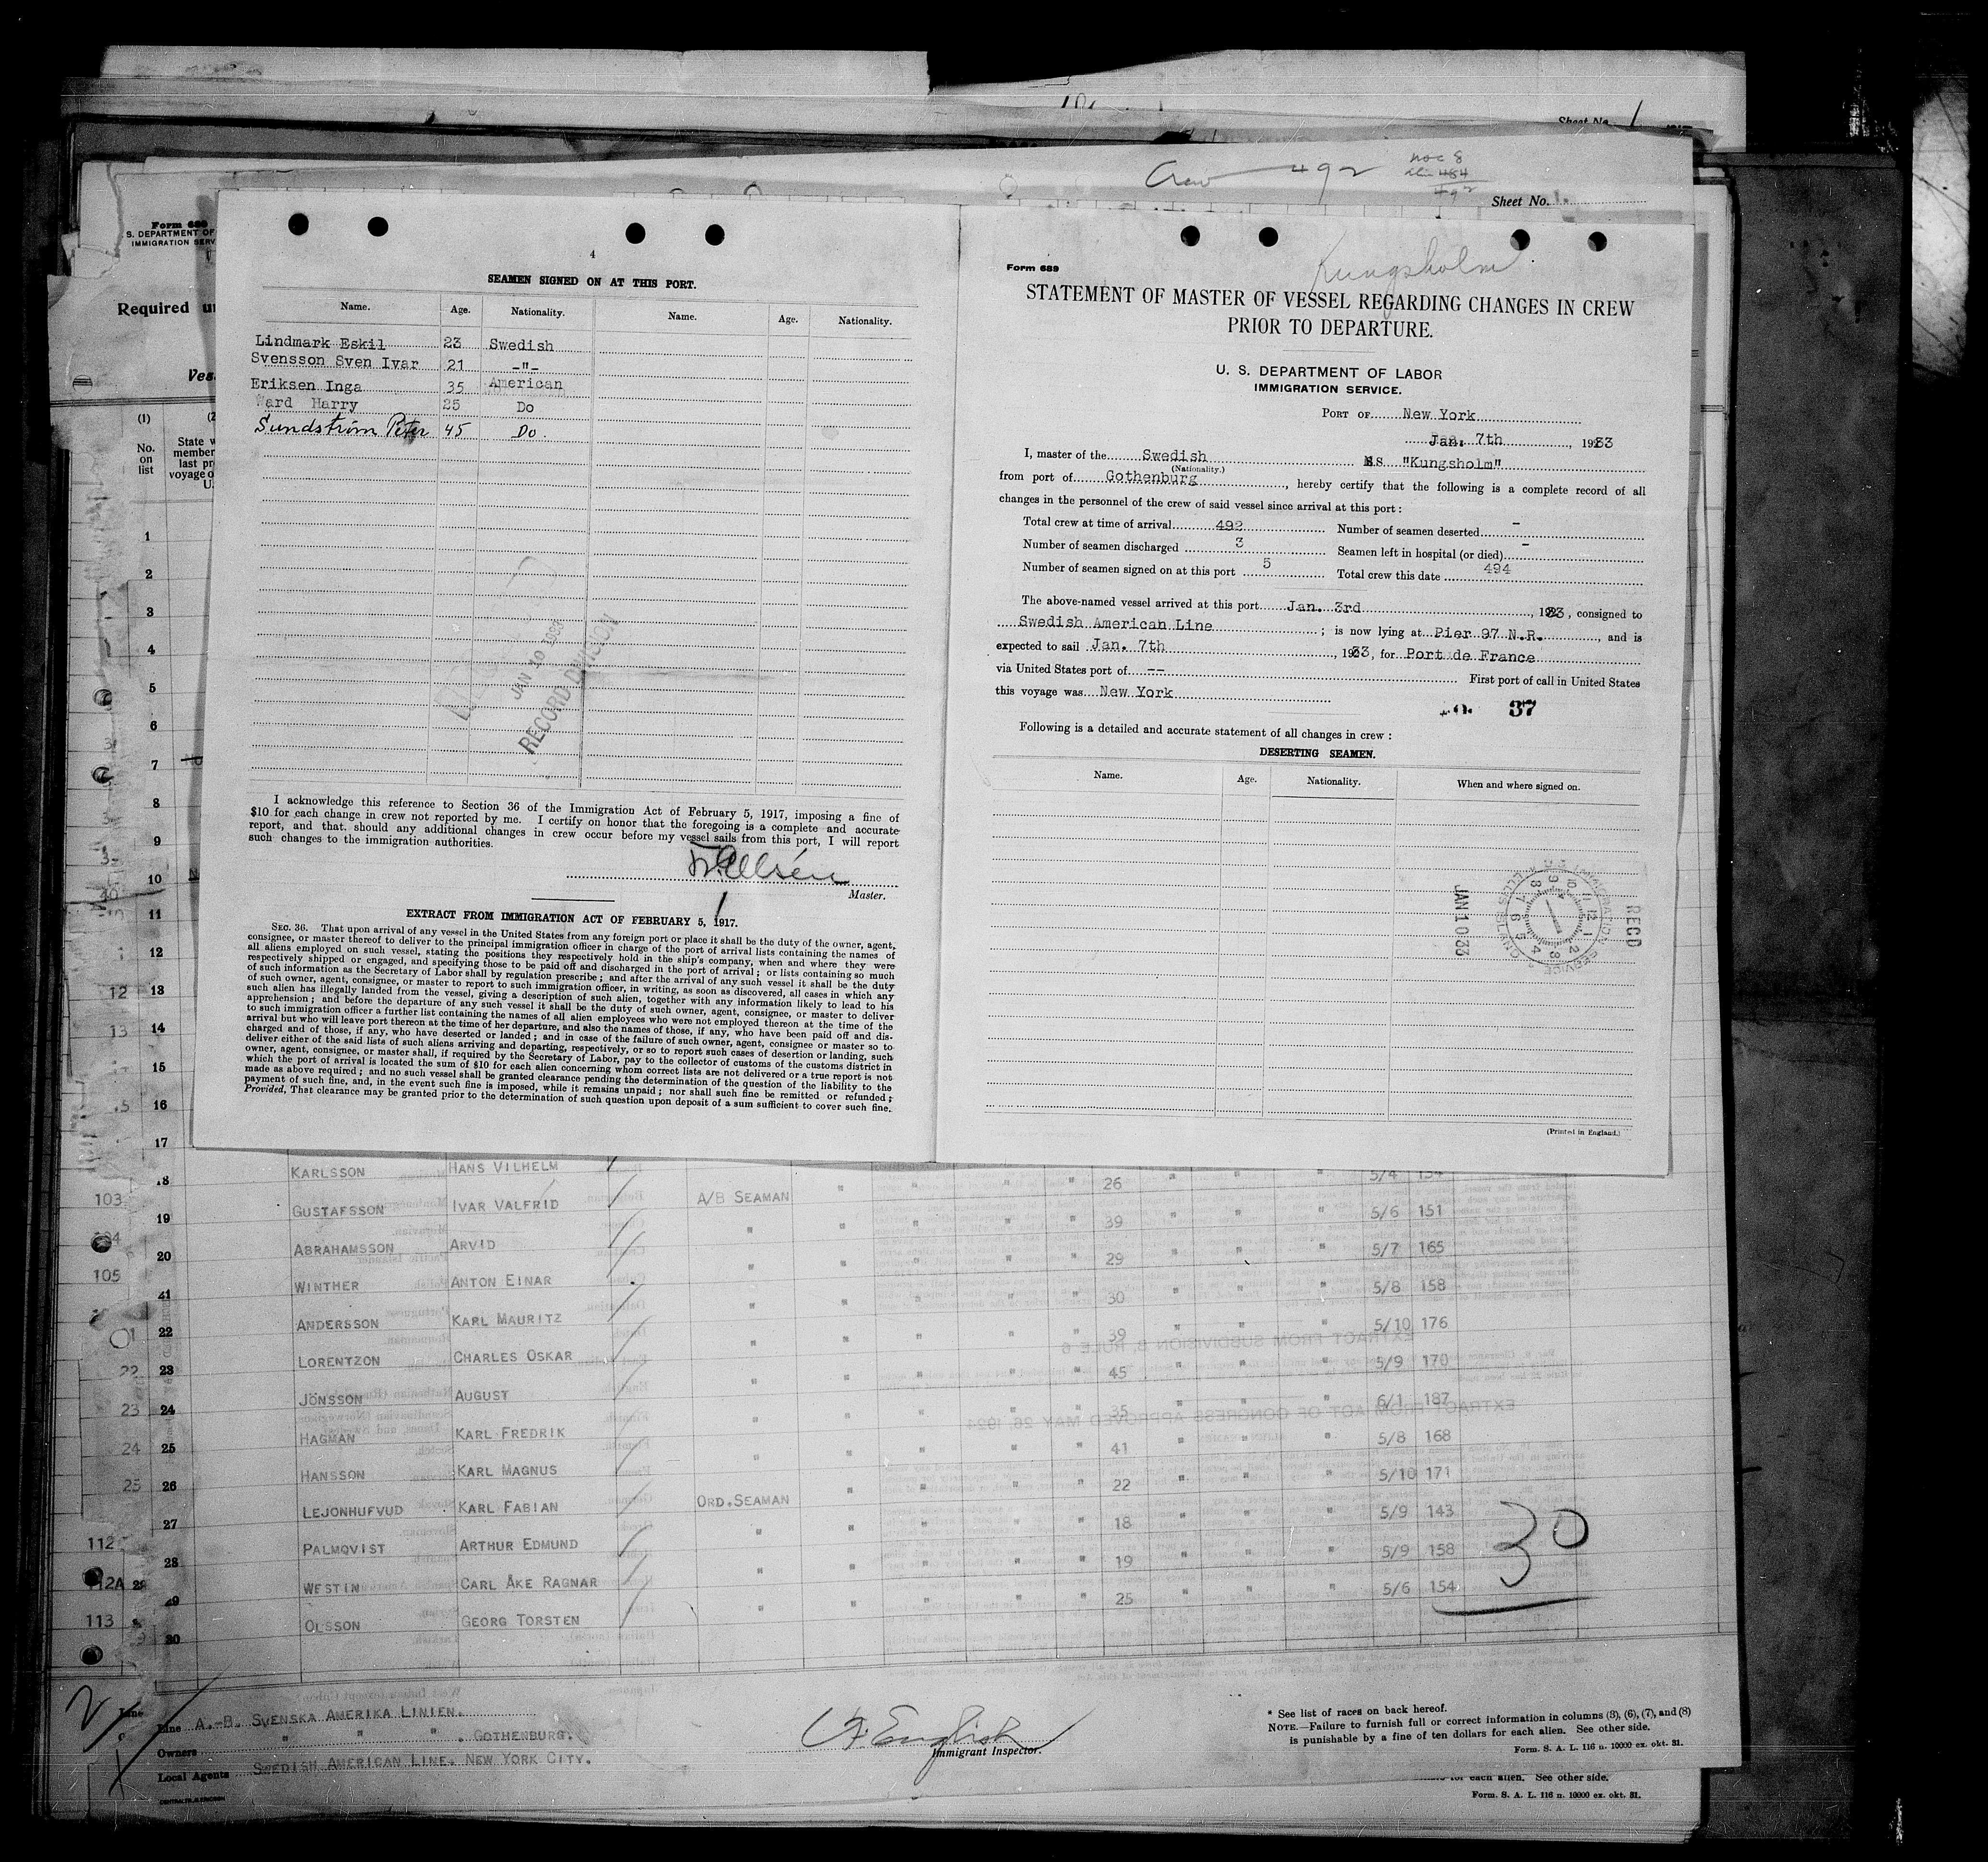 Sheet No. 1
Crew 492
Sheet No.
Form 689
S. DEPARTMENT OF
IMMIGRATION SERV
Required
(1)
No.
on
list
4
SEAMEN SIGNED ON AT THIS PORT.
Name. Age. Nationality. Name. Age. Nationality.
Lindmark Eskil 23 Swedish
Svensson Sven Ivar 21 -"-
Eriksen Inga 35 American
Ward Harry 25 Do
Sundström Peter 45 Do.
JAN 10 1933
RECORD DIVISION
I acknowledge this reference to Section 36 of the Immigration Act of February 5, 1917, imposing a fine of
$10 for each change in crew not reported by me. I certify on honor that the foregoing is a complete and accurate
report, and that should any additional changes in crew occur before my vessel sails from this port, I will report
such changes to the immigration authorities.
Master.
EXTRACT FROM IMMIGRATION ACT OF FEBRUARY 5, 1917.
SEC. 36. That upon arrival of any vessel in the United States from any foreign port or place it shall be the duty of the owner, agent,
consignee, or master thereof to deliver to the principal immigration officer in charge of the port of arrival lists containing the names of
all aliens employed on such vessel, stating the positions they respectively hold in the ship's company, when and where they were
respectively shipped or engaged, and specifying those to be paid off and discharged in the port of arrival; or lists containing so much
of such information as the Secretary of Labor shall by regulation prescribe; and after the arrival of any such vessel it shall be the duty
of such owner, agent, consignee, or master to report to such immigration officer, in writing, as soon as discovered, all cases in which any
such alien has illegally landed from the vessel, giving a description of such alien, together with any information likely to lead to his
apprehension; and before the departure of any such vessel it shall be the duty of such owner, agent, consignee, or master to deliver
to such immigration officer a further list containing the names of all alien employees who were not employed thereon at the time of the
arrival but who will leave port thereon at the time of her departure, and also the names of those, if any, who have been paid off and dis-
charged and of those, if any, who have deserted or landed; and in case of the failure of such owner, agent, consignee or master so to
deliver either of the said lists of such aliens arriving and departing, respectively, or so to report such cases of desertion or landing, such
owner, agent, consignee, or master shall, if required by the Secretary of Labor, pay to the collector of customs of the customs district in
which the port of arrival is located the sum of $10 for each alien concerning whom correct lists are not delivered or a true report is not
made as above required; and no such vessel shall be granted clearance pending the determination of the question of the liability to the
payment of such fine, and, in the event such fine is imposed, while it remains unpaid; nor shall such fine be remitted or refunded;
Provided, That clearance may be granted prior to the determination of such question upon deposit of a sum sufficient to cover such fine.
Kungsholm
Form 689
STATEMENT OF MASTER OF VESSEL REGARDING CHANGES IN CREW
PRIOR TO DEPARTURE.
U. S. DEPARTMENT OF LABOR
IMMIGRATION SERVICE.
PORT OF New York
Jan. 7th , 1933
I, master of the Swedish MS "Kungsholm"
(Nationality.)
from port of Gothenburg , hereby certify that the following is a complete record of all
changes in the personnel of the crew of said vessel since arrival at this port:
Total crew at time of arrival 492 Number of seamen deserted -
Number of seamen discharged 3 Seamen left in hospital (or died) -
Number of seamen signed on at this port 5 Total crew this date 494
The above-named vessel arrived at this port Jan. 3rd , 1933, consigned to
Swedish American Line ; is now lying at Pier 97 N.R. , and is
expected to sail Jan. 7th , 1933, for Port de France
via United States port of -- First port of call in United States
this voyage was New York
37
Following is a detailed and accurate statement of all changes in crew:
DESERTING SEAMEN.
Name. Age. Nationality. When and where signed on.
JAN 10 33
RECD
(Printed in England.)
1
2
3
4
5
6
7
8
9
10
11
12
13
14
15
16
17
KARLSSON HANS VILHELM
103 GUSTAFSSON IVAR VALFRID A/B SEAMAN " " " 26 " " " 5/4 134
ABRAHAMSSON ARVID " " " " 39 " " " 5/6 151
105 WINTHER ANTON EINAR " " " " 29 " " " 5/7 165
ANDERSSON KARL MAURITZ " " " " 30 " " " 5/8 158
22 LORENTZON CHARLES OSKAR " " " " 39 " " " 5/10 176
23 JÖNSSON AUGUST " " " " 45 " " " 5/9 170
24 HAGMAN KARL FREDRIK " " " " 35 " " " 6/1 187
25 HANSSON KARL MAGNUS " " " " 41 " " " 5/8 168
26 LEJONHUFVUD KARL FABIAN ORD.SEAMAN " " " 22 " " " 5/10 171
27 PALMQVIST ARTHUR EDMUND " " " " 18 " " " 5/9 143
112 28 WESTIN CARL ÅKE RAGNAR " " " " 19 " " " 5/9 158
112A 29 OLSSON GEORG TORSTEN " " " " 25 " " " 5/6 154
113
30
30
Line A.-B. SVENSKA AMERIKA LINIEN.
Owners " " " . GOTHENBURG.
Local Agents SWEDISH AMERICAN LINE. NEW YORK CITY.
English
Immigrant Inspector.
* See list of races on back hereof.
NOTE.—Failure to furnish full or correct information in columns (3), (6), (7), and (8)
is punishable by a fine of ten dollars for each alien. See other side.
Form. S. A. L. 116 n. 10000 ex. okt. 31.
for each alien. See other side.
Form. S. A. L. 116 n. 10000 ex. okt. 31.